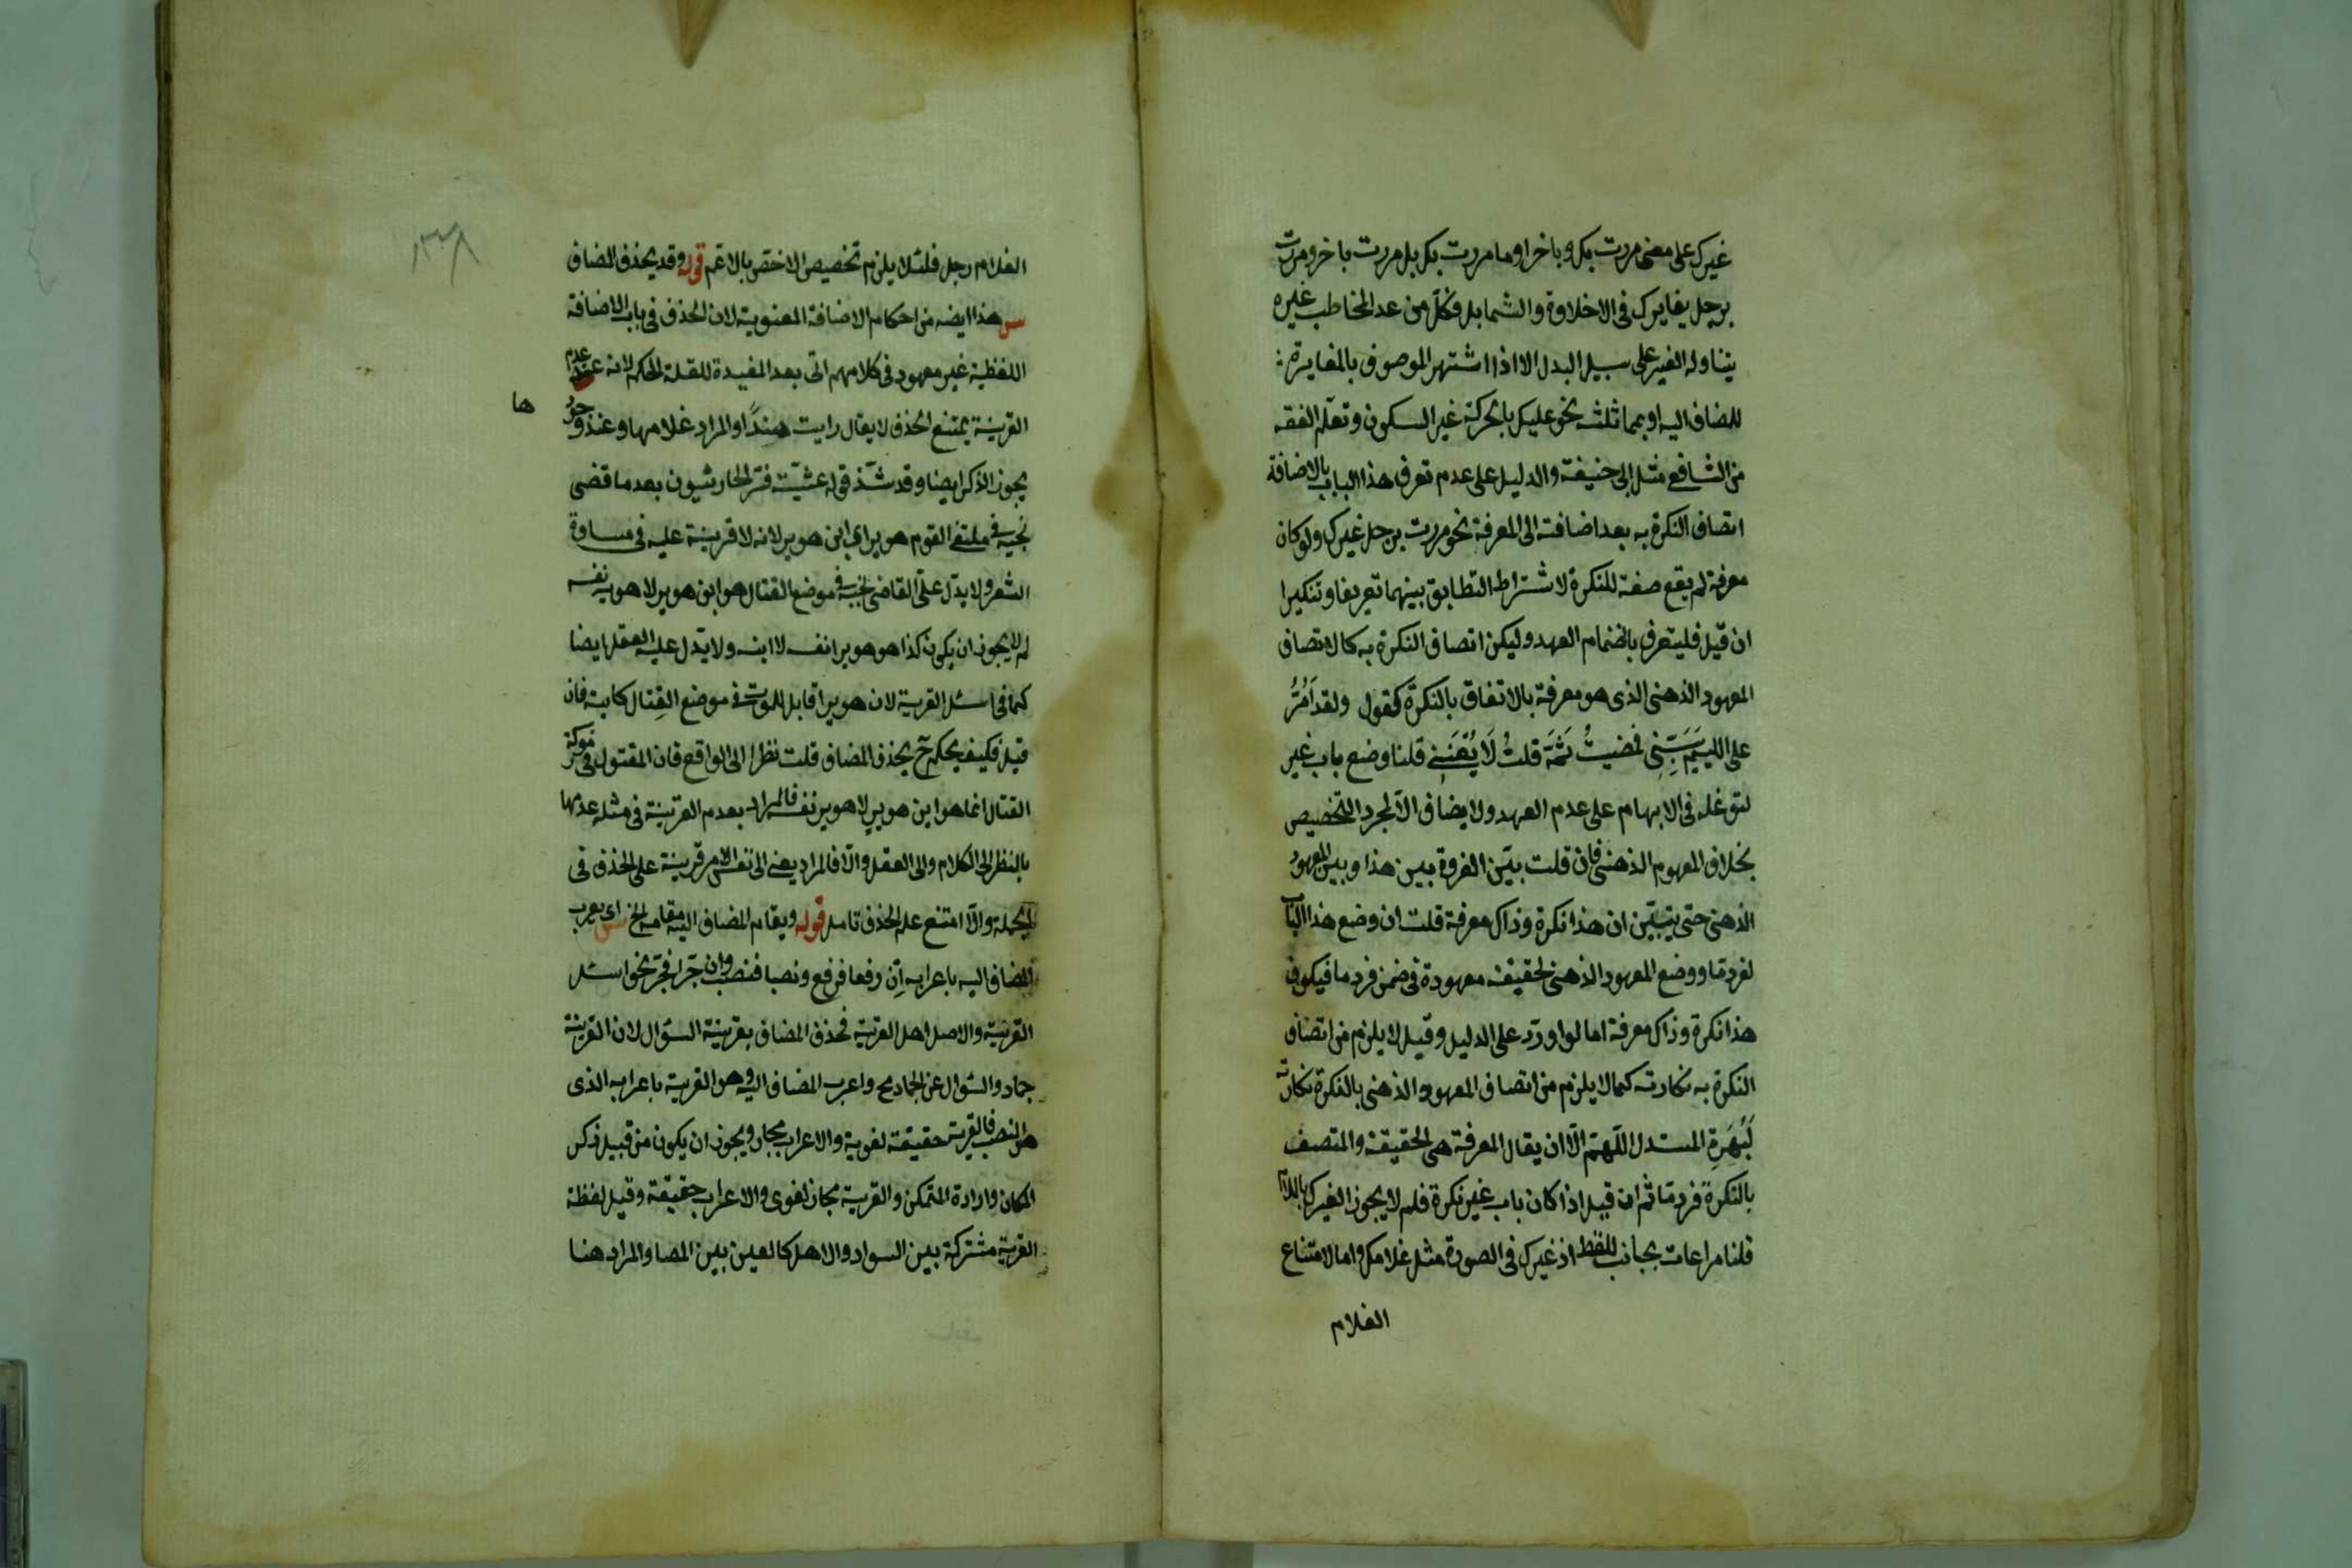 غيرك على معنى مررت بك وباخر او ما مررت بك بل مررت باخر ومررت
برجل يغايرك في الاخلاق والشمايل فكل من عد المخاطب غيره
يتناوله الغير على سبيل البدل الا اذا اشتهر الموصوف بالمغايرة
للمضاف اليه او بمماثلته نحو عليك بالحركة غير السكون وتعلم الفقه
من الشافعي مثل ابي حنيفة والدليل على عدم تعرف هذا الباب بالاضافة
اتصاف النكرة به بعد اضافته الى المعرفة نحو مررت برجل غيرك ولو كان
معرفة لم يقع صفة للنكرة لاشتراط التطابق بينهما تعريفا وتنكيرا
ان قيل فليتعرف بانضمام العهد وليكن اتصاف النكرة به كالاتصاف
المعهود الذهني الذي هو معرفة بالاتفاق بالنكرة كقول ولقد اَمُرُّ
على اللئيم يَسُبُّنِي فمضيتُ ثَمَّةَ قلتُ لَا يُعْنَينے قلنا وضع باب غير
لتوغله في الابهام على عدم العهد ولا يضاف الّا لمجرد التخصيص
بخلاف المعهوم الذهني فان قلت بيّن الفروق بين هذا وبين المعهود
الذهني حتى يتبيّن ان هذا نكرة وذاك معرفة قلت ان وضع هذا الباب
لفرد مّا ووضع المعهود الذهني لحقيقة معهودة في ضمن فرد ما فيكون
هذا نكرة وذاك معرفة اما لو اورد على الدليل وقيل لا يلزم من اتصاف
النكرة به نكارته كما لا يلزم من اتصاف المعهود الذهني بالنكرة نكارته
المستدل اللّهمّ الّا ان يقال المعرفة هي الحقيقة والمتصف
بالنكرة فرد مّا ثم ان قيل اذا كان باب غير نكرة فلم لا يجوز الغيرك باللام
قلنا مراعات بجانب اللفظ اذ غيرك في الصورة مثل غلامك واما الامتناع
الغلام
الغلام رجل فلئلا يلزم تخصيص الاخص بالاعم قوله وقد يحذف المضاف
س هذا ايضه من احكام الاضافة المعنوية لان الحذف في باب الاضافة
اللفظية غير معهود في كلامهم اتى بعد المفيدة للقلة الحكم لانه عند عدم
القرينة يمتنع الحذف لا يقال رايت هندًا والمراد غلامها وعند وجود
ها
يجوز الذكر ايضا وقد شذ قوله عشيّت فرّ الحارثيون بعد ما قضى
نحبه في ملتقى القوم هوبر اي ابن هوبر لانه لا قرينة عليه في مساوة
الشعر ولا يدل على القاضي نحبه في موضع القتال هو ابن هوبر لا هوبر نفسه
لم لا يجوز ان يكون كذا هو هوبرا نفسه لا ابنه ولا يدل عليه العقل ايضا
كما في اسئل القرية لان هوبرا قابل للموت في موضع القتال كابنه فان
قيل فكيف يحكم ح بحذف المضاف قلت نظرا الى الواقع فان المقتول في معركة
القتال انما هو ابن هوبر لا هوبر نفسه فالمراد بعدم القرينة في مثله عدمها
بالنظر الى الكلام والى العقل والّا فالمراد يعني الى نفس الامر قرينة على الحذف في
الجملة والّا امتنع على الحذف تامل قوله ويقام المضاف اليه مقامه الخ س اى يعرب
المضاف اليه باعرابه اِن رفعا فرفع ونصبا فنصب وان جرا فجر نحو اسئل
القرية والاصل اهل القرية فحذف المضاف بقرينة السؤال لان القرينة
جماد والسؤال عن الجماد مح واعرب المضاف اليه وهو القرية باعرابه الذى
هو النصب فالقرية حقيقة لغوية والاعراب مجاز ويجوز ان يكون من قبيل ذكر
المكان وارادة المتمكن والقرية مجاز لغوى والاعراب حقيقة وقيل لفظة
القرية مشتركة بين السواد والاهل كالعين بين المصا والمراد هنا